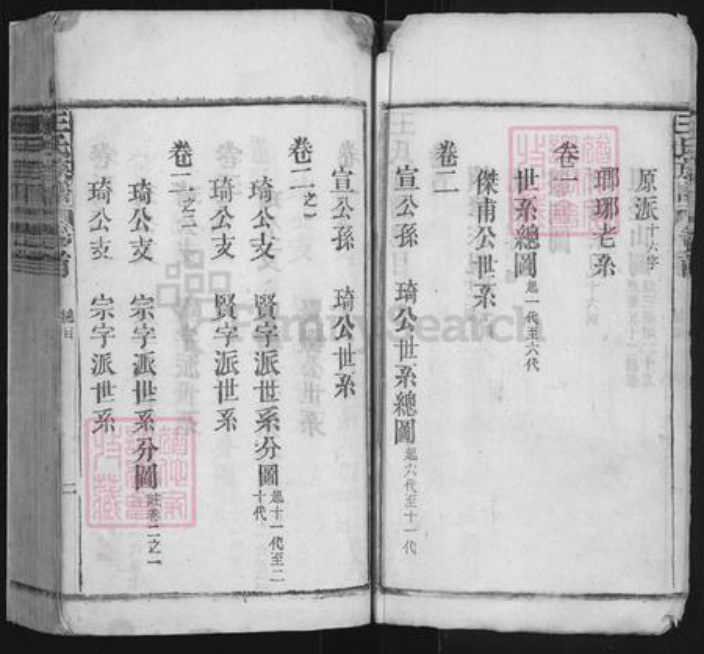 原派十六字
瑯琊老系
卷一
世系總圖起一代至六代
傑甫公世系
卷二
宣公孫 琦公世系總圖起六代至十一代
宣公孫 琦公世系
卷二之一
琦公支 賢字派世系分圖起十一代至二十代
琦公支 賢字派世系
卷二之二
琦公支 宗字派世系分圖註卷二之一
琦公支 宗字派世系
總目
二
FamilySearch